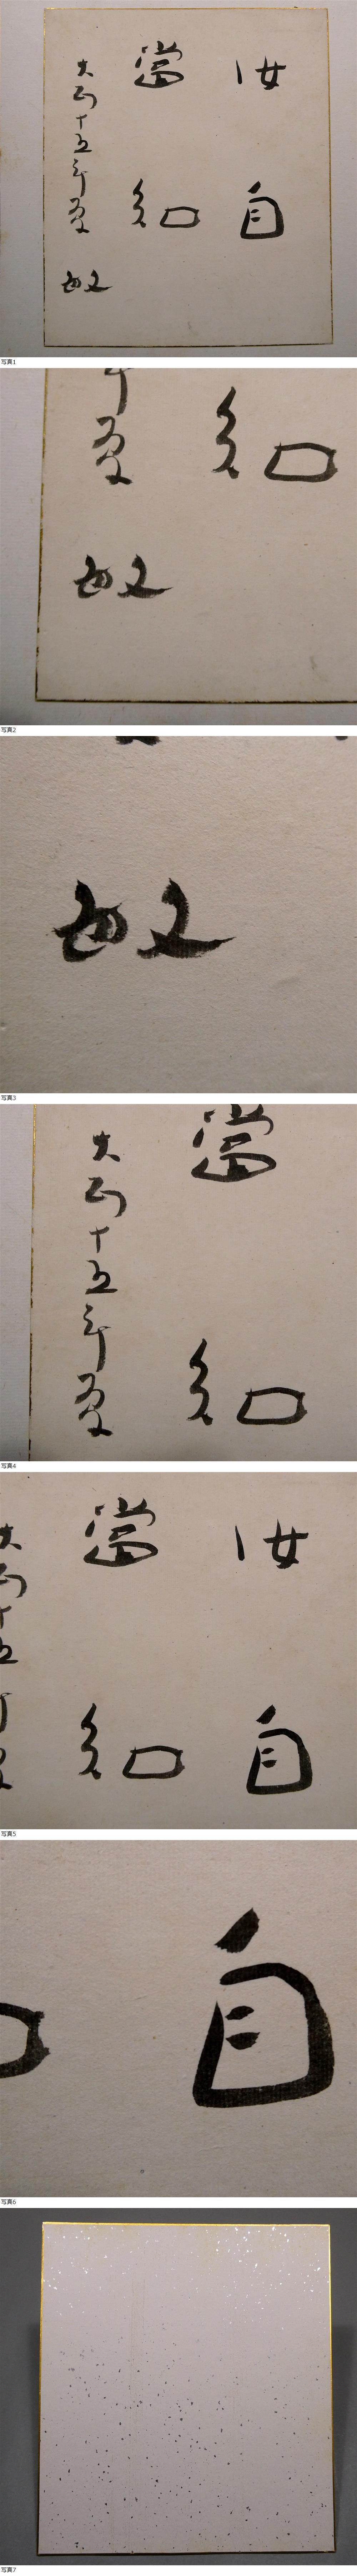 汝自
當知
大正十五年夏
敏
写真1
写真2
写真3
写真4
写真5
写真6
写真7